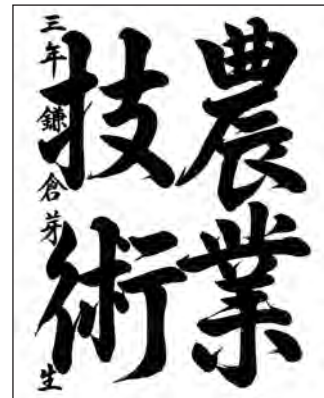 農業
技術
三年鎌倉芽生